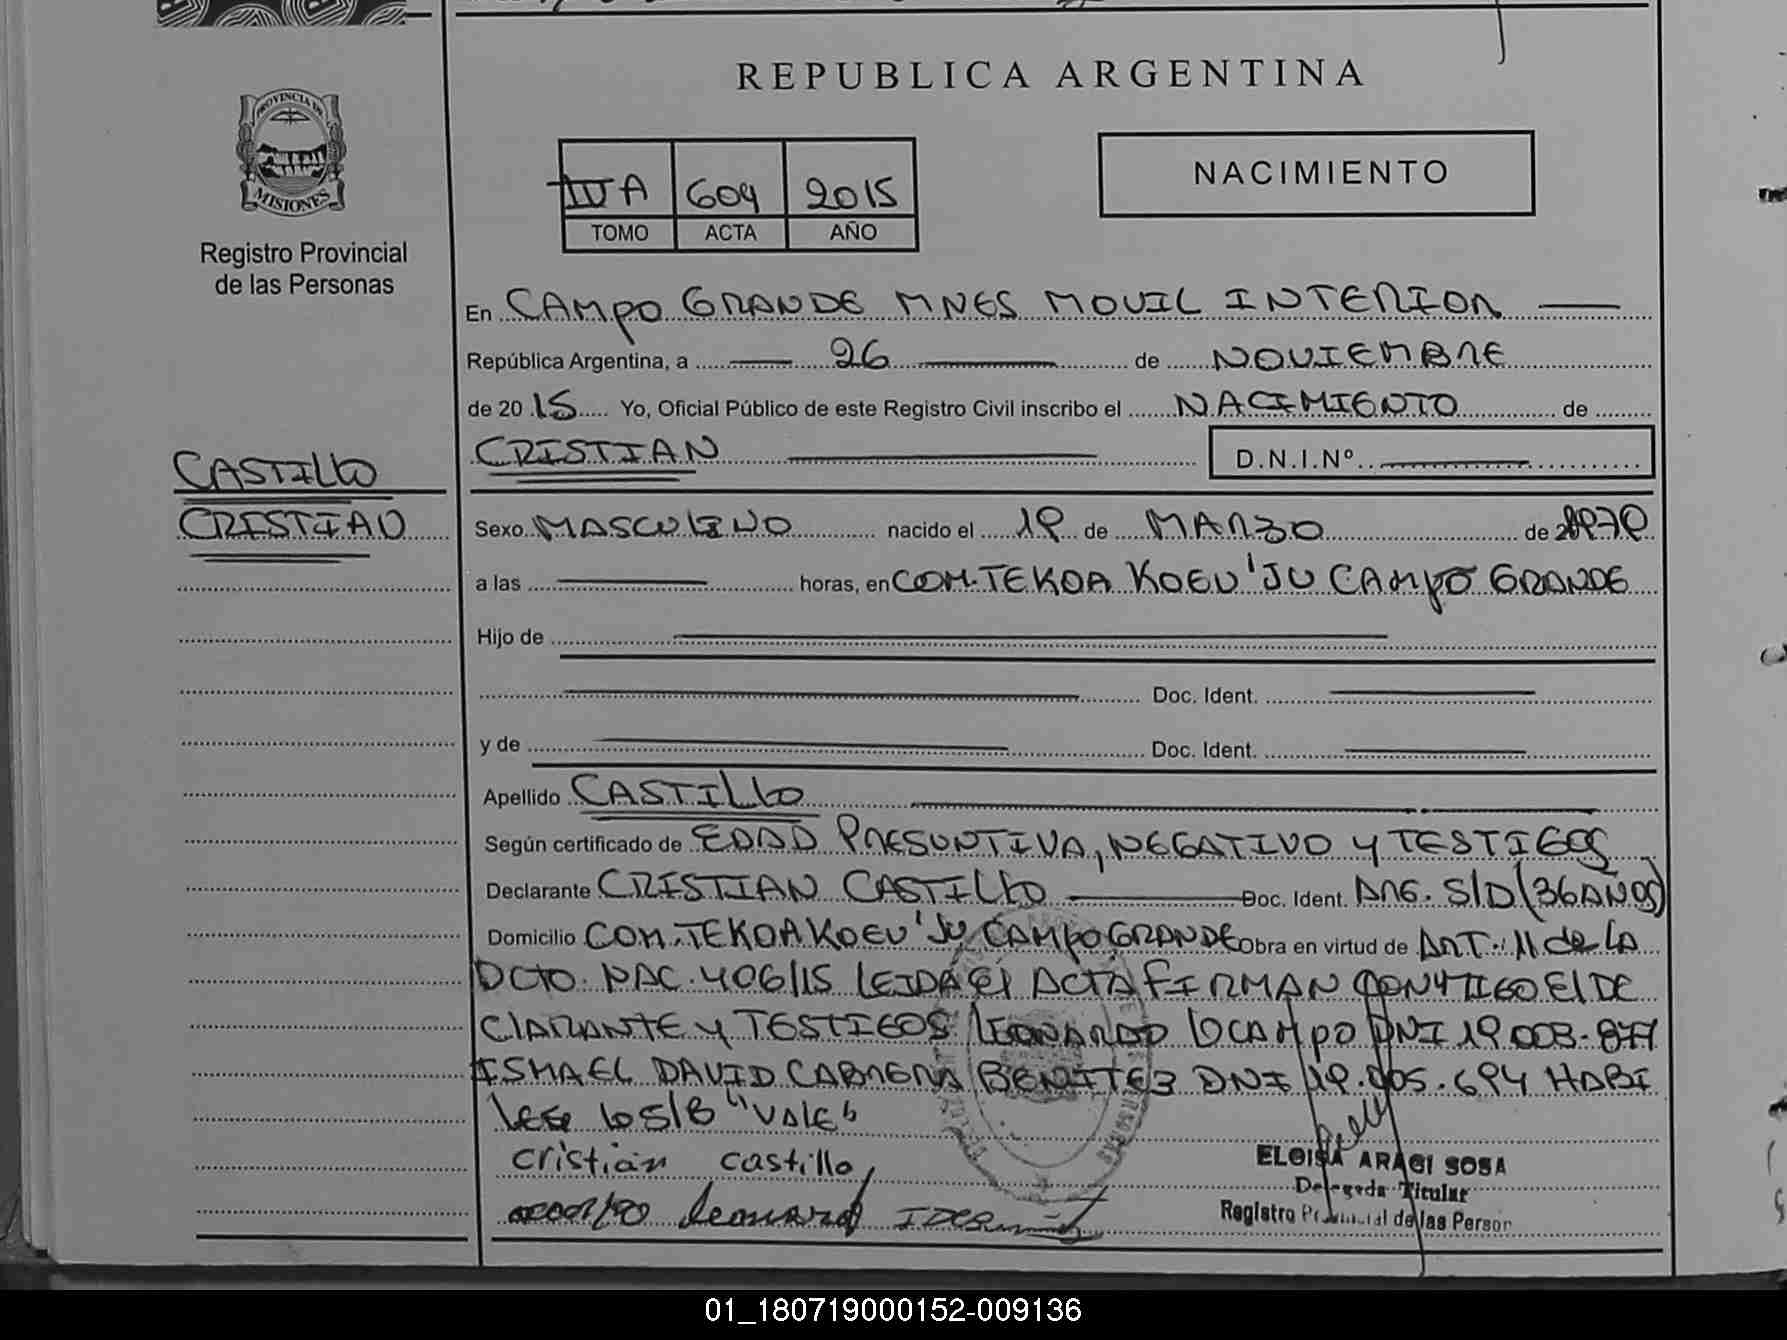 REPUBLICA ARGENTINA
PROVINCIA DE
MISIONES
Registro Provincial
de las Personas
IV A 604 2015
TOMO ACTA AÑO
NACIMIENTO
En CAMPO GRANDE MNES MOVIL INTERIOR
República Argentina, a 26 de NOVIEMBRE
de 20 15 Yo, Oficial Público de este Registro Civil inscribo el NACIMIENTO de
CRISTIAN D.N.I.Nº
CASTILLO
CRISTIAN
Sexo MASCULINO nacido el 19 de MARZO de 1979
a las horas, en COM. TEKOA KOEU'JU CAMPO GRANDE
Hijo de
Doc. Ident.
y de Doc. Ident.
Apellido CASTILLO
Según certificado de EDAD PRESUNTIVA, NEGATIVO Y TESTIGOS
Declarante CRISTIAN CASTILLO Doc. Ident. ARG. S/D (36 AÑOS)
Domicilio COM. TEKOA KOEU'JU CAMPO GRANDE Obra en virtud de ART. 11 de LA
DCTO. NAC. 406/15 LEIDA El ACTA FIRMAN CONMIGO El DE
CLARANTE y TESTIGOS LEONARDO OCAMPO DNI 19.003.877
ISMAEL DAVID CABRERA BENITEZ DNI 19.005.694 HABI
LESE lo S/B "VALE"
cristian castillo
Leonard
ELOISA ARAGI SOSA
Delegada Titular
Registro Provincial de las Person
01_180719000152-009136